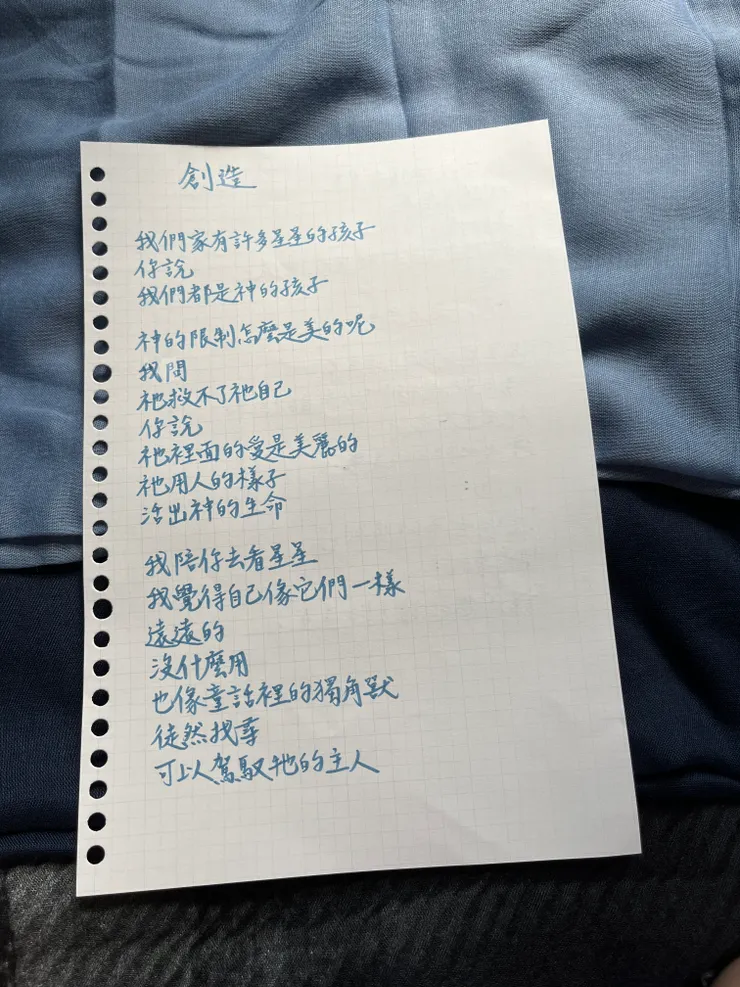 創造
我們家有許多星星的孩子
你說
我們都是神的孩子
神的限制怎麼是美的呢
我問
祂救不了祂自己
你說
祂裡面的愛是美麗的
祂用人的樣子
活出神的生命
我陪你去看星星
我覺得自己像它們一樣
遠遠的
沒什麼用
也像童話裡的獨角獸
徒然找尋
可以駕馭牠的主人